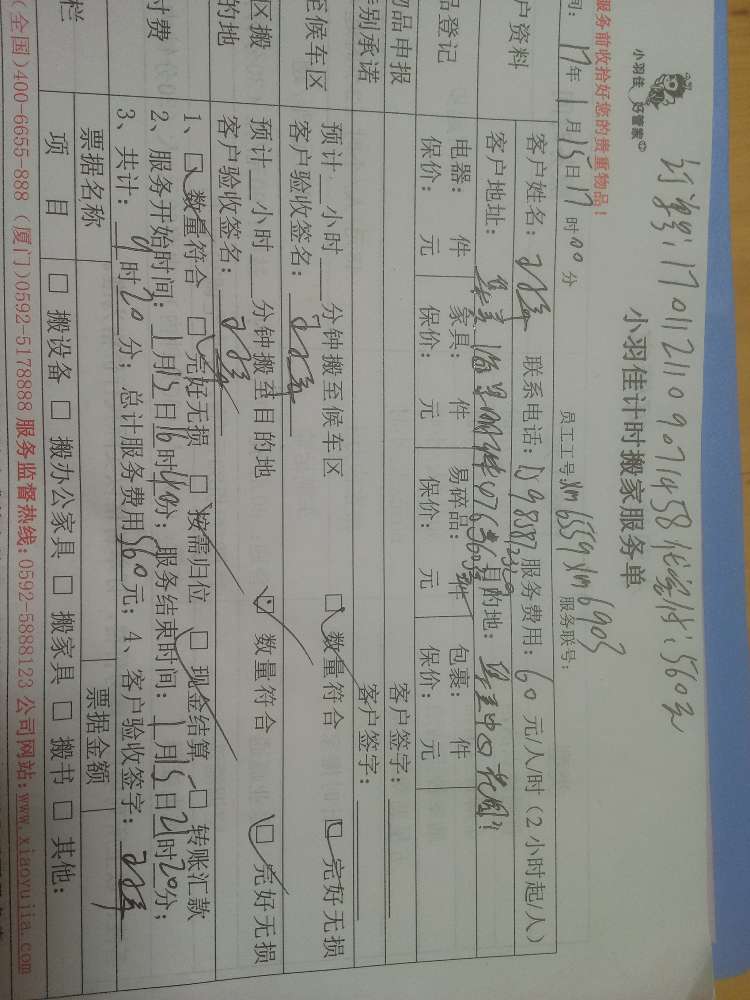 订单号：170112110907145
小羽佳 好管家
小羽佳计时搬家服务单
服务前收拾好您的贵重物品！
间：17年1月15日17时00分 员工工号：xm6559 xm6903 服务联号：
户资料 客户姓名： 联系电话： 服务费用：60元/人/时（2小时起/人）
客户地址： 目的地：
品登记 电器： 件 家具： 件 易碎品： 件 包裹： 件
保价： 元 保价： 元 保价： 元 保价： 元
物品申报 客户签字：
特别承诺 客户签字：
至候车区 预计 小时 分钟搬至候车区 数量符合 完好无损
客户验收签名：
区搬 预计 小时 分钟搬至目的地 数量符合 完好无损
的地 客户验收签名：
1、 数量符合 完好无损 按需归位 现金结算 转账汇款
付费 2、服务开始时间：1月15日16时40分；服务结束时间：1月15日21时20分；
3、共计： 时20分；总计服务费用560元；4、客户验收签字：
栏 票据名称 票据金额
项目 搬设备 搬办公家具 搬家具 搬书 其他：
(全国)400-6655-888（厦门)0592-5178888 服务监督热线:0592-5888123 公司网站:www.xiaoyujia.com